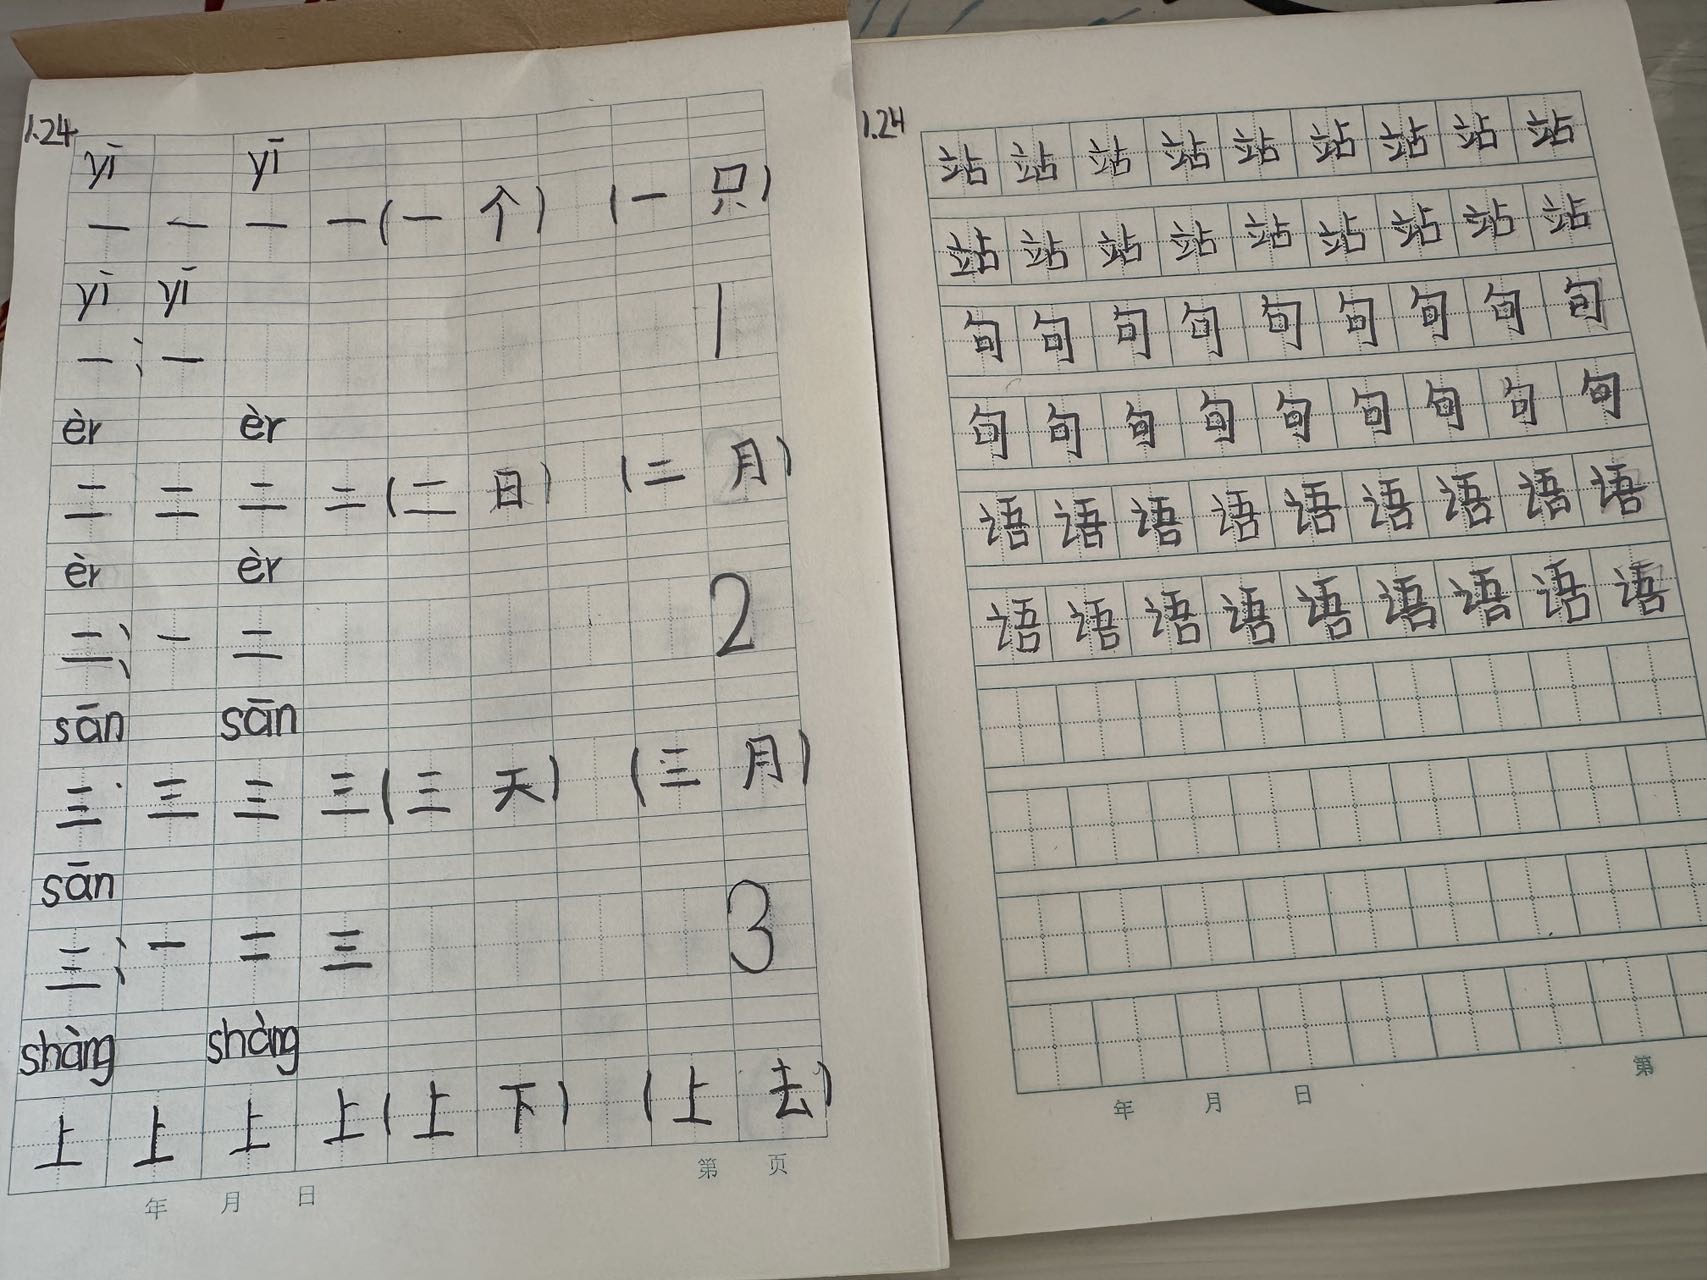 1.24
yī yī
一 一 一 一 (一 个) (一 只)
yī yī
一; 一 1
èr èr
二 二 二 二 (二 日) (二 月)
èr èr
二; 一 二 2
sān sān
三 三 三 三 (三 天) (三 月)
sān
三; 一 二 三 3
shàng shàng
上 上 上 上 (上 下) (上 去)
年 月 日 第 页
1.24
站 站 站 站 站 站 站 站 站
站 站 站 站 站 站 站 站 站
句 句 句 句 句 句 句 句 句
句 句 句 句 句 句 句 句 句
语 语 语 语 语 语 语 语 语
语 语 语 语 语 语 语 语 语
年 月 日 第